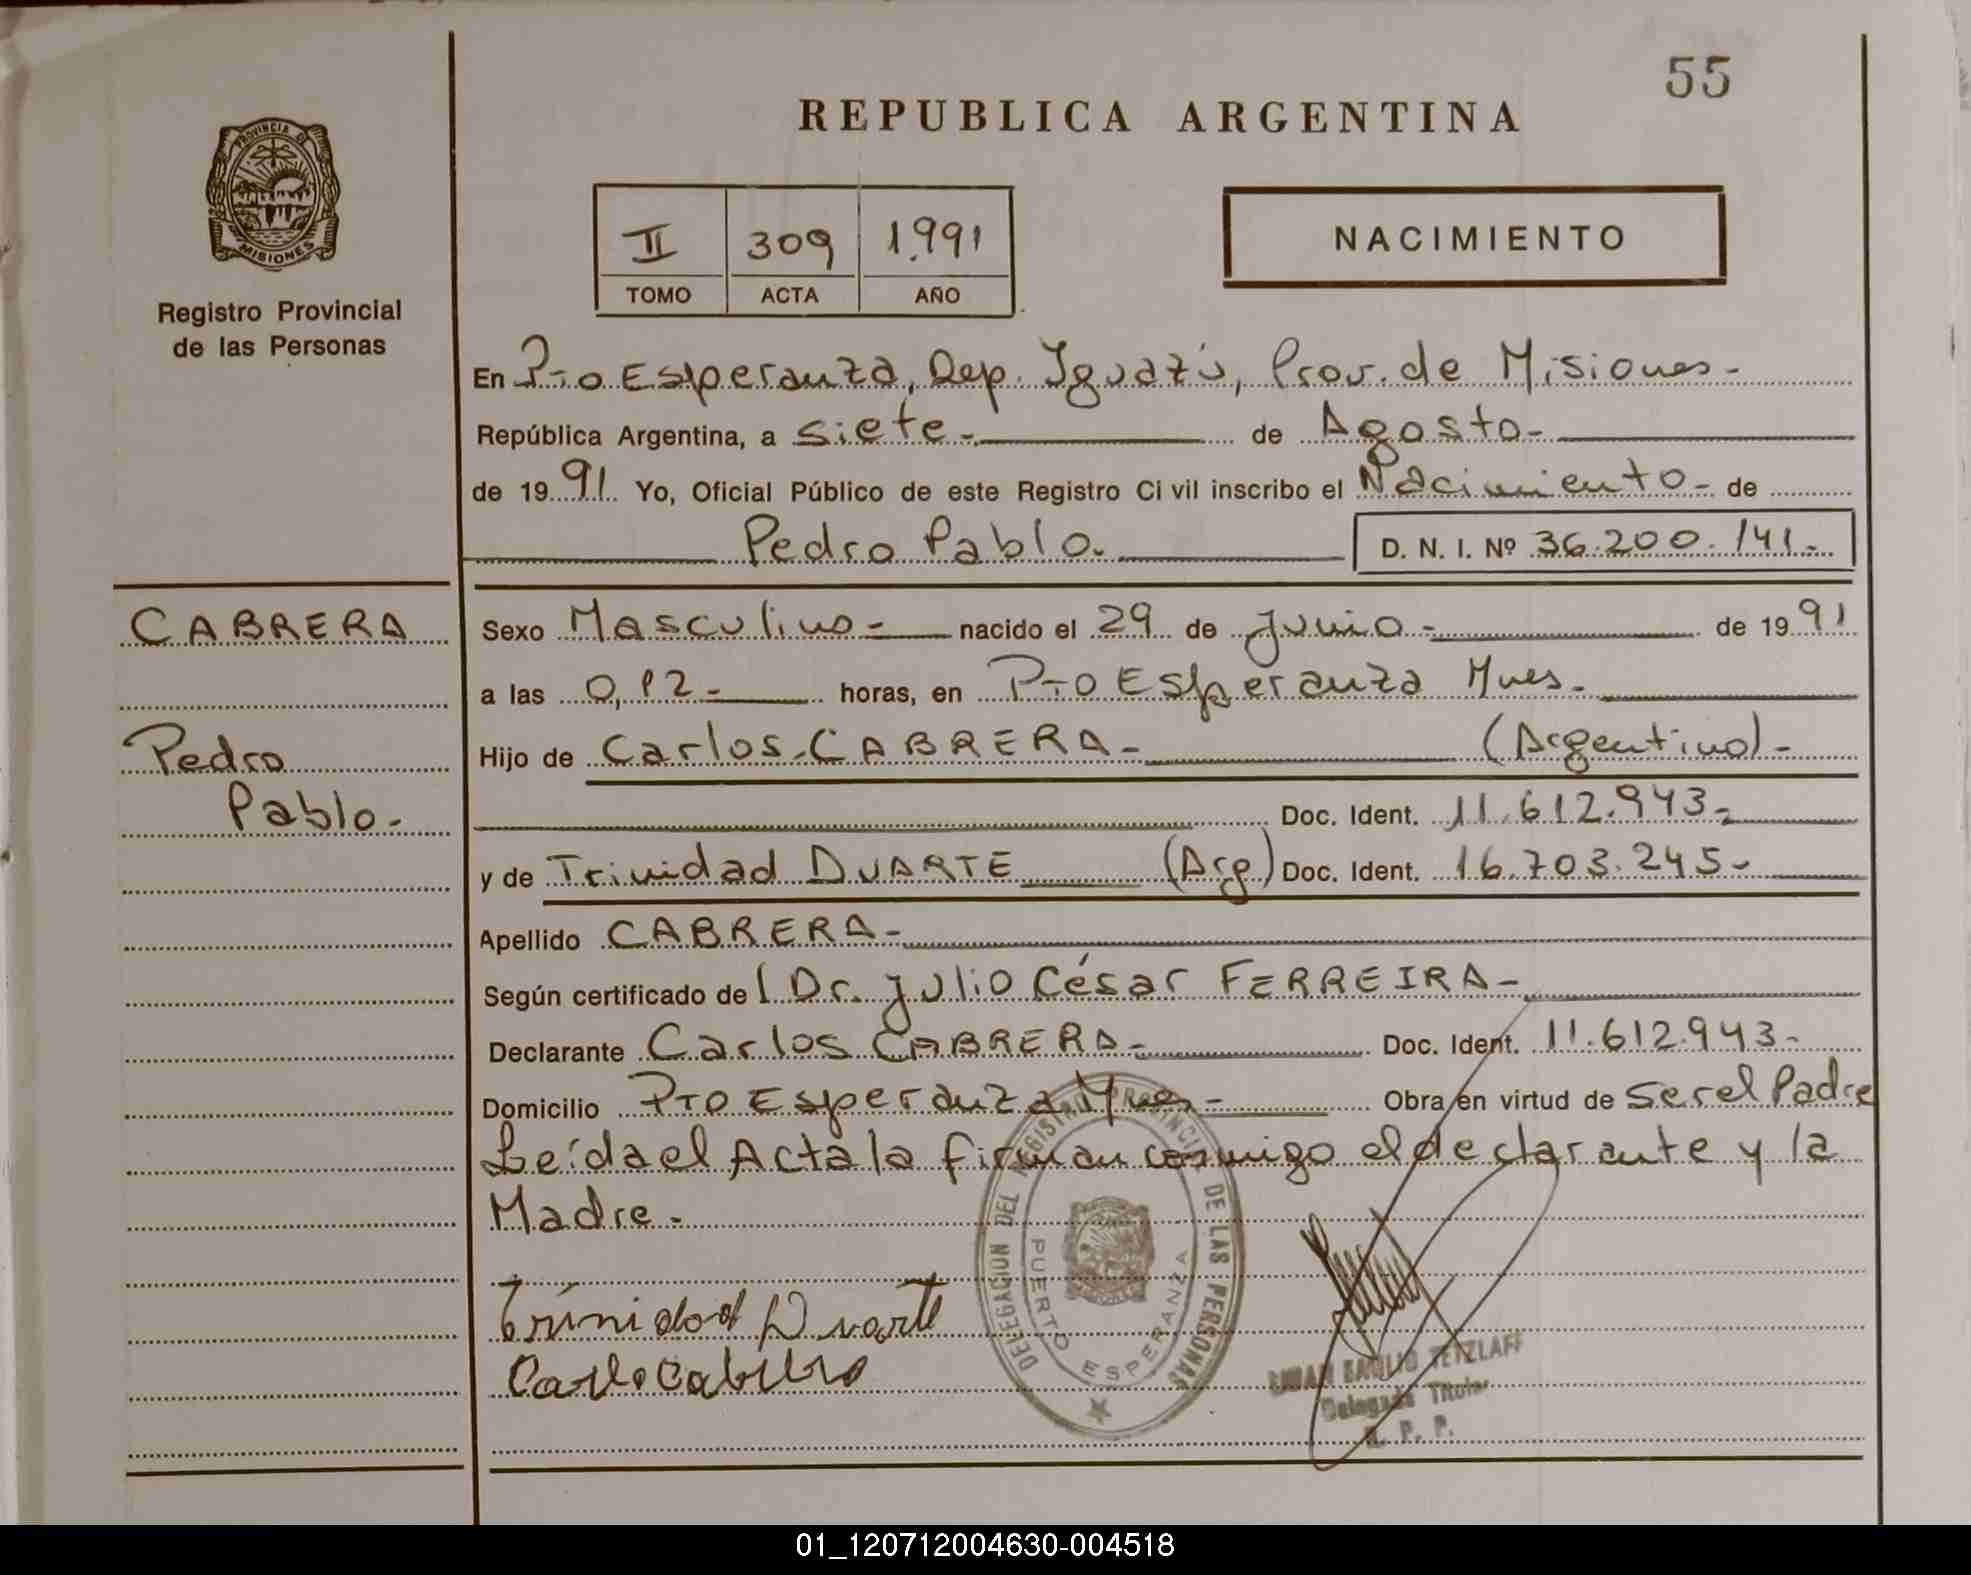 55
REPUBLICA ARGENTINA
PROVINCIA DE MISIONES
Registro Provincial
de las Personas
II 309 1.991
TOMO ACTA AÑO
NACIMIENTO
En Pto Esperanza, Dep. Iguazú, Prov. de Misiones-
República Argentina, a siete- de Agosto-
de 1991 Yo, Oficial Público de este Registro Civil inscribo el Nacimiento- de
Pedro Pablo.- D. N. I. Nº 36.200.141.-
CABRERA
Pedro
Pablo.-
Sexo Masculino- nacido el 29 de Junio- de 1991
a las 0,12- horas, en Pto Esperanza Mnes.-
Hijo de Carlos CABRERA- (Argentino)-
Doc. Ident. 11.612.943-
y de Trinidad DUARTE (Arg) Doc. Ident. 16.703.245-
Apellido CABRERA-
Según certificado del Dr. Julio César FERREIRA-
Declarante Carlos CABRERA- Doc. Ident. 11.612.943-
Domicilio Pto Esperanza Mnes- Obra en virtud de ser el Padre
Leída el Acta la firman conmigo el declarante y la
Madre-
Trinidad Duarte
Carlo Cabrera
DELEGACION DEL REGISTRO PROVINCIAL DE LAS PERSONAS
PUERTO ESPERANZA
EMILIO TETZLAFF
Delegado Titular
R. P. P.
01_120712004630-004518